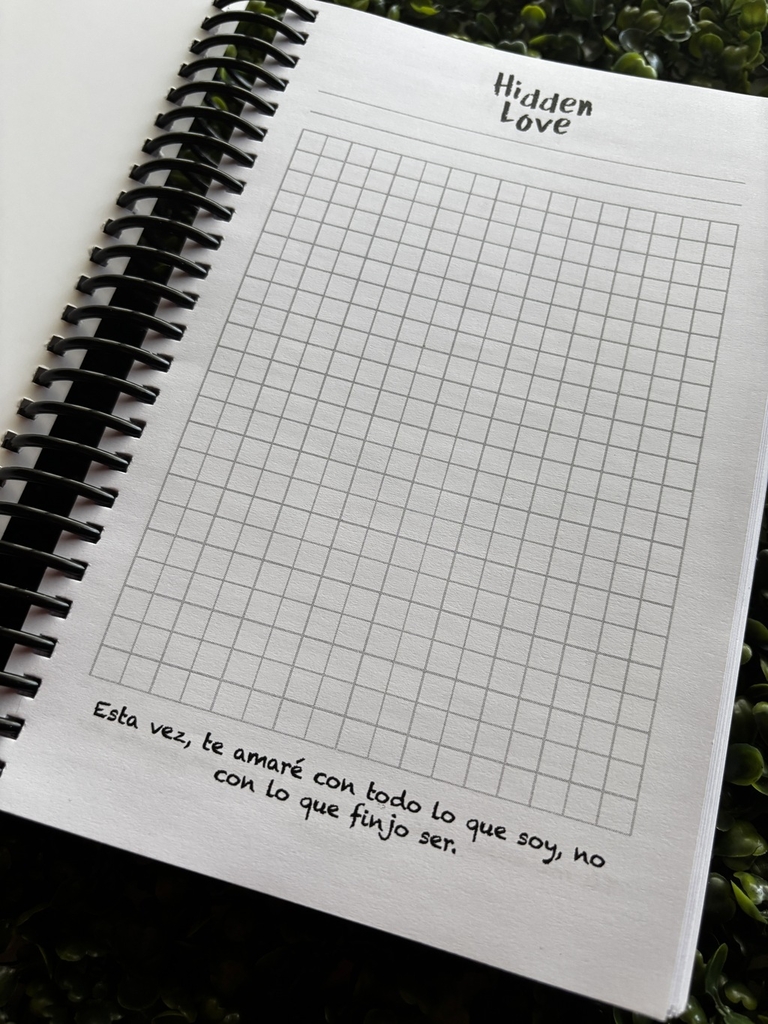 Hidden
Love
Esta vez, te amaré con todo lo que soy, no
con lo que finjo ser.